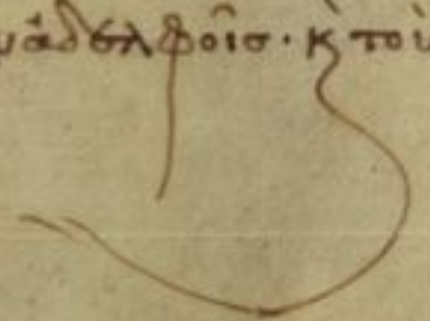 ἀδελφοῖσ· κ̀ τοὺ